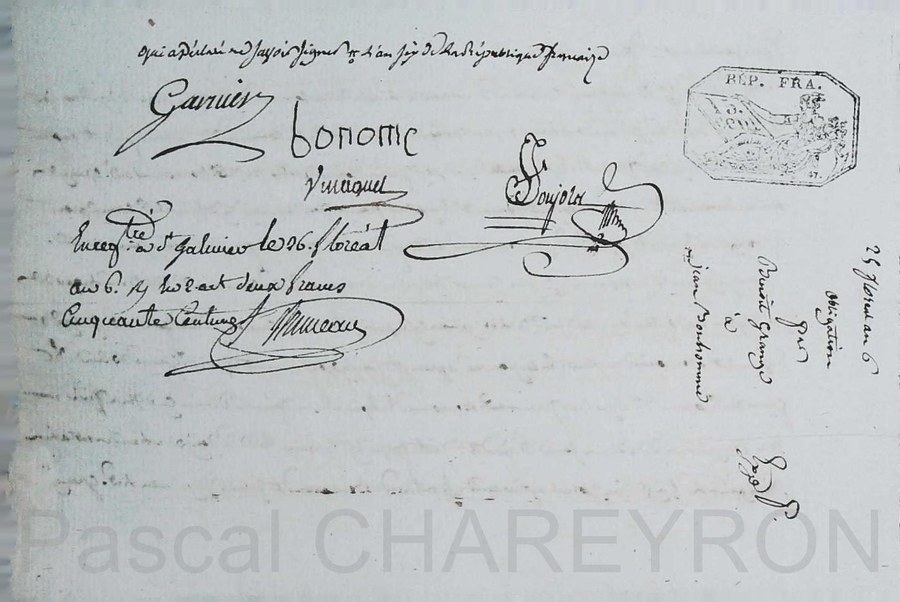 qui a déclaré ne savoir signer l'an six de la République française
Garnier
bonome
RÉP. FRA.
Enregtré à St Galmier le 26. floréal
an 6. reçu deux francs
Cinquante Centimes
25 floréal an 6
obligation
par
Benoit Grange
à
Jean Bonhomme
Pascal CHAREYRON